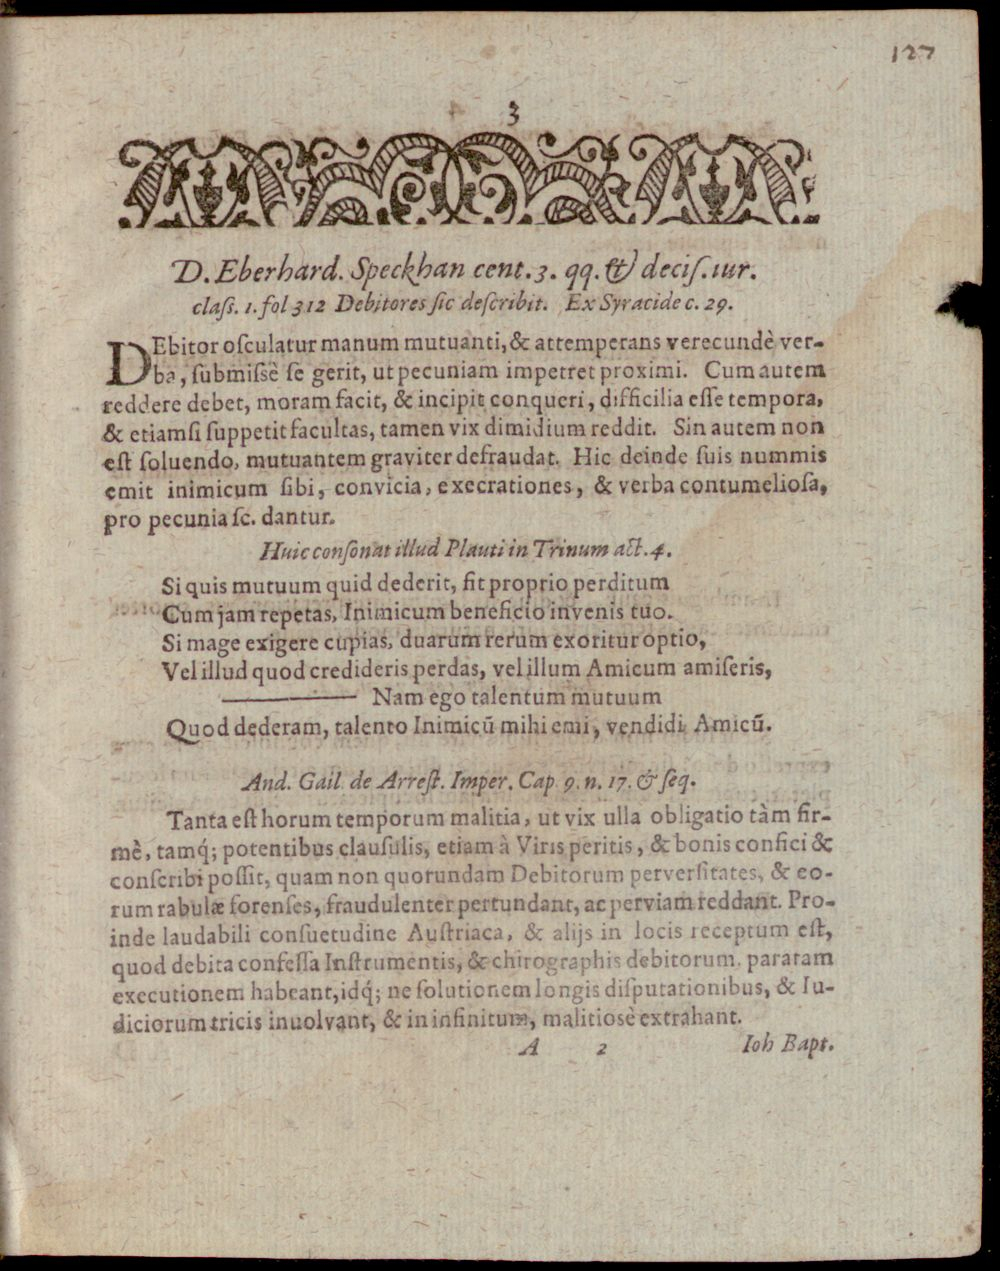 127
3
D. Eberhard. Speckhan cent. 3. qq. & decis. iur.
class. 1. fol 312 Debitores sic describit. Ex Syracide c. 29.
DEbitor osculatur manum mutuanti, & attemperans verecundè ver-
ba, submissè se gerit, ut pecuniam impetret proximi. Cum autem
reddere debet, moram facit, & incipit conqueri, difficilia esse tempora,
& etiamsi suppetit facultas, tamen vix dimidium reddit. Sin autem non
est soluendo, mutuantem graviter defraudat. Hic deinde suis nummis
emit inimicum sibi, convicia, execrationes, & verba contumeliosa,
pro pecunia sc. dantur.
Huic consonat illud Plauti in Trinum act. 4.
Si quis mutuum quid dederit, fit proprio perditum
Cum jam repetas, Inimicum beneficio invenis tuo.
Si mage exigere cupias, duarum rerum exoritur optio,
Vel illud quod credideris perdas, vel illum Amicum amiseris,
——— Nam ego talentum mutuum
Quod dederam, talento Inimicū mihi emi, vendidi Amicū.
And. Gail de Arrest. Imper. Cap 9. n. 17. & seq.
Tanta est horum temporum malitia, ut vix ulla obligatio tàm fir-
mè, tamq́; potentibus clausulis, etiam à Viris peritis, & bonis confici &
conscribi possit, quam non quorundam Debitorum perversitates, & eo-
rum rabulæ forenses, fraudulenter pertundant, ac perviam reddant. Pro-
inde laudabili consuetudine Austriaca, & alijs in locis receptum est,
quod debita confessa Instrumentis, & chirographis debitorum, paratam
executionem habeant, idq́; ne solutionem longis disputationibus, & Iu-
diciorum tricis inuolvant, & in infinitum, malitiosè extrahant.
A 2 Ioh Bapt.